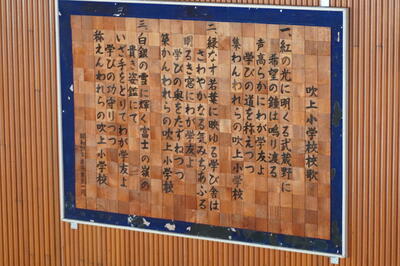 吹上小学校校歌
一、紅の光に明くる武蔵野に
希望の鐘は鳴り渡る
声高らかにわが学友よ
学びの道を称えつつ
集わんわれらの吹上小学校
二、緑なす若葉に映ゆる学び舎は
さわやかなる気みちあふる
明るき窓にわが学友よ
学びの奥をたずねつつ
築かんわれらの吹上小学校
三、白銀の雪に輝く富士の嶺の
貴き姿鑑にて
いざ手をとりてわが学友よ
学びの功守りつつ
称えんわれらの吹上小学校